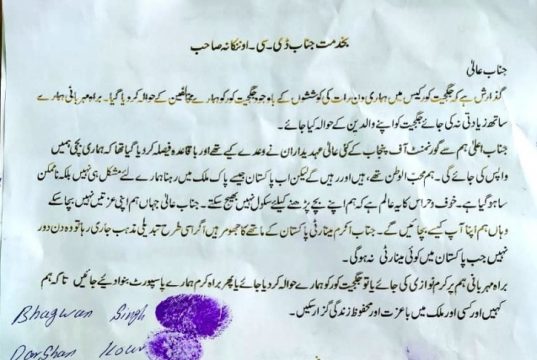 بخدمت جناب ڈی ۔ سی ۔ او ننکانہ صاحب
جناب عالیٰ
گذارش ہے کہ جگجیت کور کیس میں ہماری دن رات کی کوششوں کے باوجود جگجیت کور کو ہمارے مخالفین کے حوالہ کر دیا گیا۔ براہ مہربانی ہمارے
ساتھ زیادتی نہ کی جائے جگجیت کو اپنے والدین کے حوالہ کیا جائے۔
جناب اعلیٰ ہم سے گورنمنٹ آف پنجاب کے کئی عالیٰ عہدیداران نے وعدے کیے تھے اور باقاعدہ فیصلہ کر دیا گیا تھا کہ ہماری بچی ہمیں
واپس کی جائے گی۔ ہم محب الوطن تھے، ہیں اور رہیں گے لیکن اب پاکستان جیسے پاک ملک میں رہنا ہمارے لئے مشکل ہی نہیں بلکہ ناممکن
سا ہو گیا ہے۔ خوف و حراس کا یہ عالم ہے کہ ہم اپنے بچے پڑھنے کیلئے سکول نہیں بھیج سکتے۔ جناب عالیٰ جہاں ہم اپنی عزتیں نہیں بچا سکے
وہاں ہم اپنا آپ کیسے بچائیں گے۔ جناب اکرم مینارٹی پاکستان کے ماتھے کا جھومر ہیں اگر اسی طرح تبدیلی مذہب جاری رہا تو وہ دن دور
نہیں جب پاکستان میں کوئی مینارٹی نہ ہو گی۔
براہ مہربانی ہم پر کرم نوازی کی جائے یا تو جگجیت کور کو ہمارے حوالہ کر دیا جائے یا پھر براہ کرم ہمارے پاسپورٹ بنوا دیئے جائیں تاکہ ہم
کہیں اور کسی اور ملک میں با عزت اور محفوظ زندگی گزار سکیں۔
Bhagwan Singh
Darshan Kour